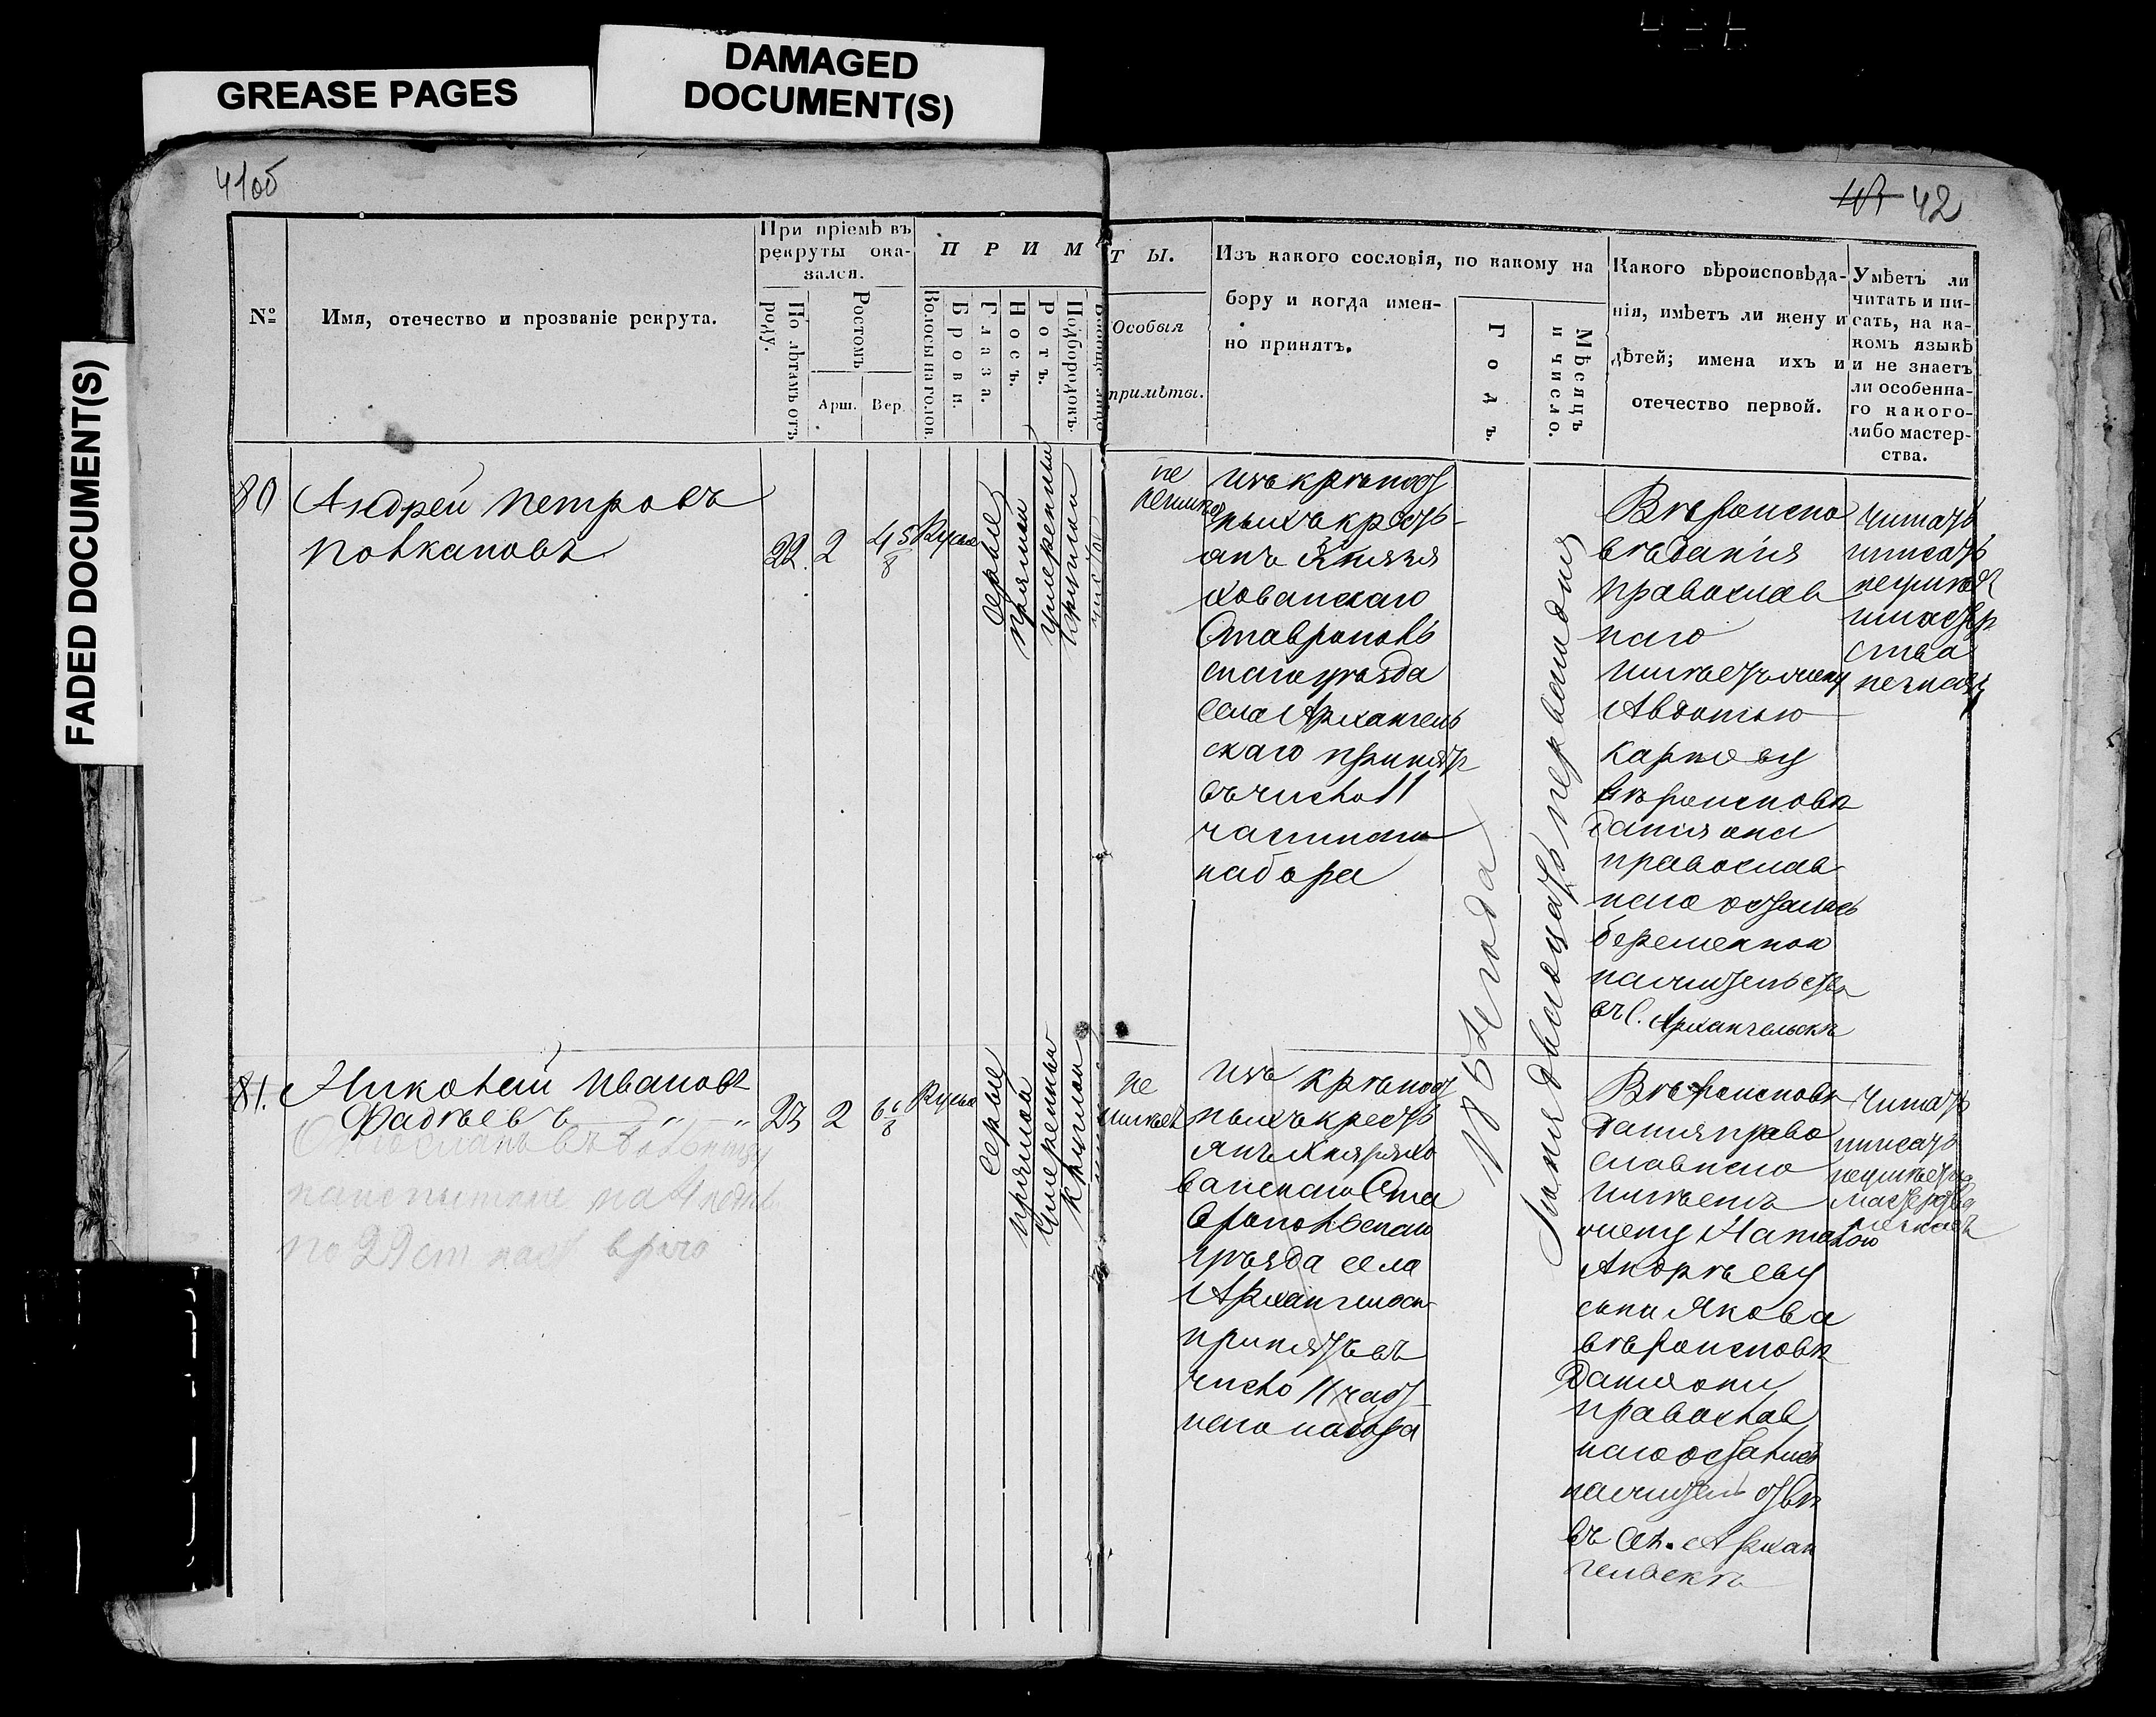 GREASE PAGES
DAMAGED
DOCUMENT(S)
FADED DOCUMENT(S)
41об
42
№
Имя, отечество и прозваніе рекрута.
При пріемѣ въ
рекруты ока-
зался.
По лѣтамъ отъ
роду.
Ростомъ
Арш.
Вер.
П Р И М
Волосы на голов.
Брови.
Глаза.
Носъ.
Ротъ.
Подбородокъ.
Т Ы.
Особыя
примѣты.
Изъ какого сословія, по какому на
бору и когда имен-
но принятъ.
Годъ.
Мѣсяцъ
и число.
Какого вѣроисповѣда-
нія, имѣетъ ли жену и
дѣтей; имена ихъ и
отечество первой.
Умѣетъ ли
читать и пи-
сать, на ка-
комъ языкѣ
и не знаетъ
ли особенна-
го какого-
либо мастер-
ства.
80
Андрей Петровъ
22. 2 4 5/8 Русые
сѣрые
прямой
умеренный
круглый
чистое
не
изъ крѣпост
ныхъ кресть-
анъ Князя
хованскаго
Ставрополь
скаго уѣзда
села Архангель
скаго принятъ
въ число 11
частнаго
набора
1864 года
Июня двадцать первагодня
Вѣроиспо
вѣданія
православ
наго
имѣетъ жену
Авдотью
Карпову
вѣроисповѣ
данія она
православ
наго осталась
беременной
на жительствѣ
въ С. Архангельскѣ
Читать
писать
неумѣетъ
мастер
ства
незнаетъ
81.
Николай Ивановъ
Фадѣевъ
на 4 недѣли
по 29 ст
23 2 6 6/8 Русые
сѣрые
прямой
умеренный
круглый
не
имѣетъ
изъ крѣпост
ныхъ кресть
янъ Князя хо
ванскаго Ста
вропольскаго
уѣзда села
Архангельск
принятъ въ
число 11 част
наго набора
Вѣроисповѣ
данія право
славнаго
имѣетъ
жену Наталью
Андрѣеву
сына Якова
вѣроисповѣ
данія они
православ
наго остались
на жительствѣ
въ сел. Архан
гельскѣ
Читать
писать
неумѣетъ
мастерства
незнаетъ